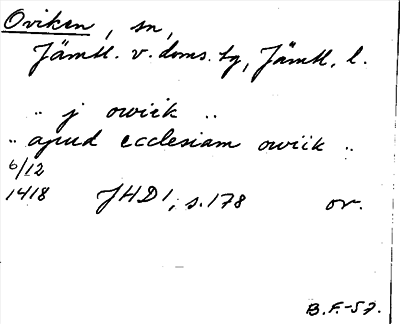 Oviken, sn,
Jämtl. v. doms. tg, Jämtl. l.
.. j owiik ..
.. apud ecclesiam owiik ..
6/12
1418 JHD 1, s. 178 or.
B. F. -57.